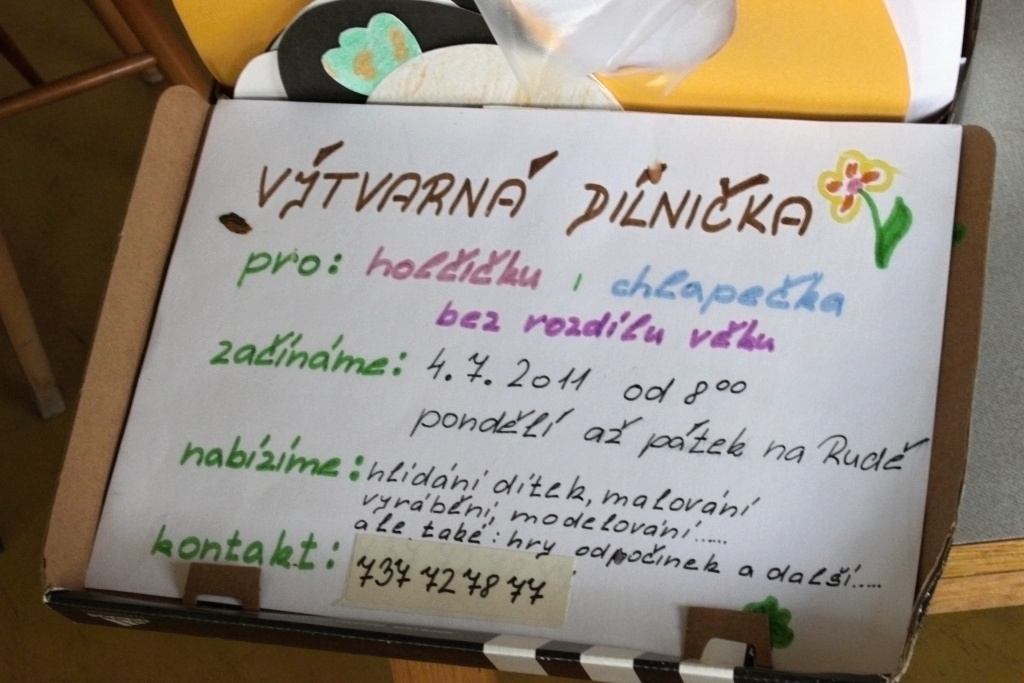 VÝTVARNÁ DÍLNIČKA
pro: holčičku i chlapečka
bez rozdílu věku
začínáme: 4. 7. 2011 od 8⁰⁰
pondělí až pátek na Rudě
nabízíme: hlídání dítek, malování
vyrábění, modelování.....
ale také: hry odpočinek a další.....
kontakt: 737 72 78 77